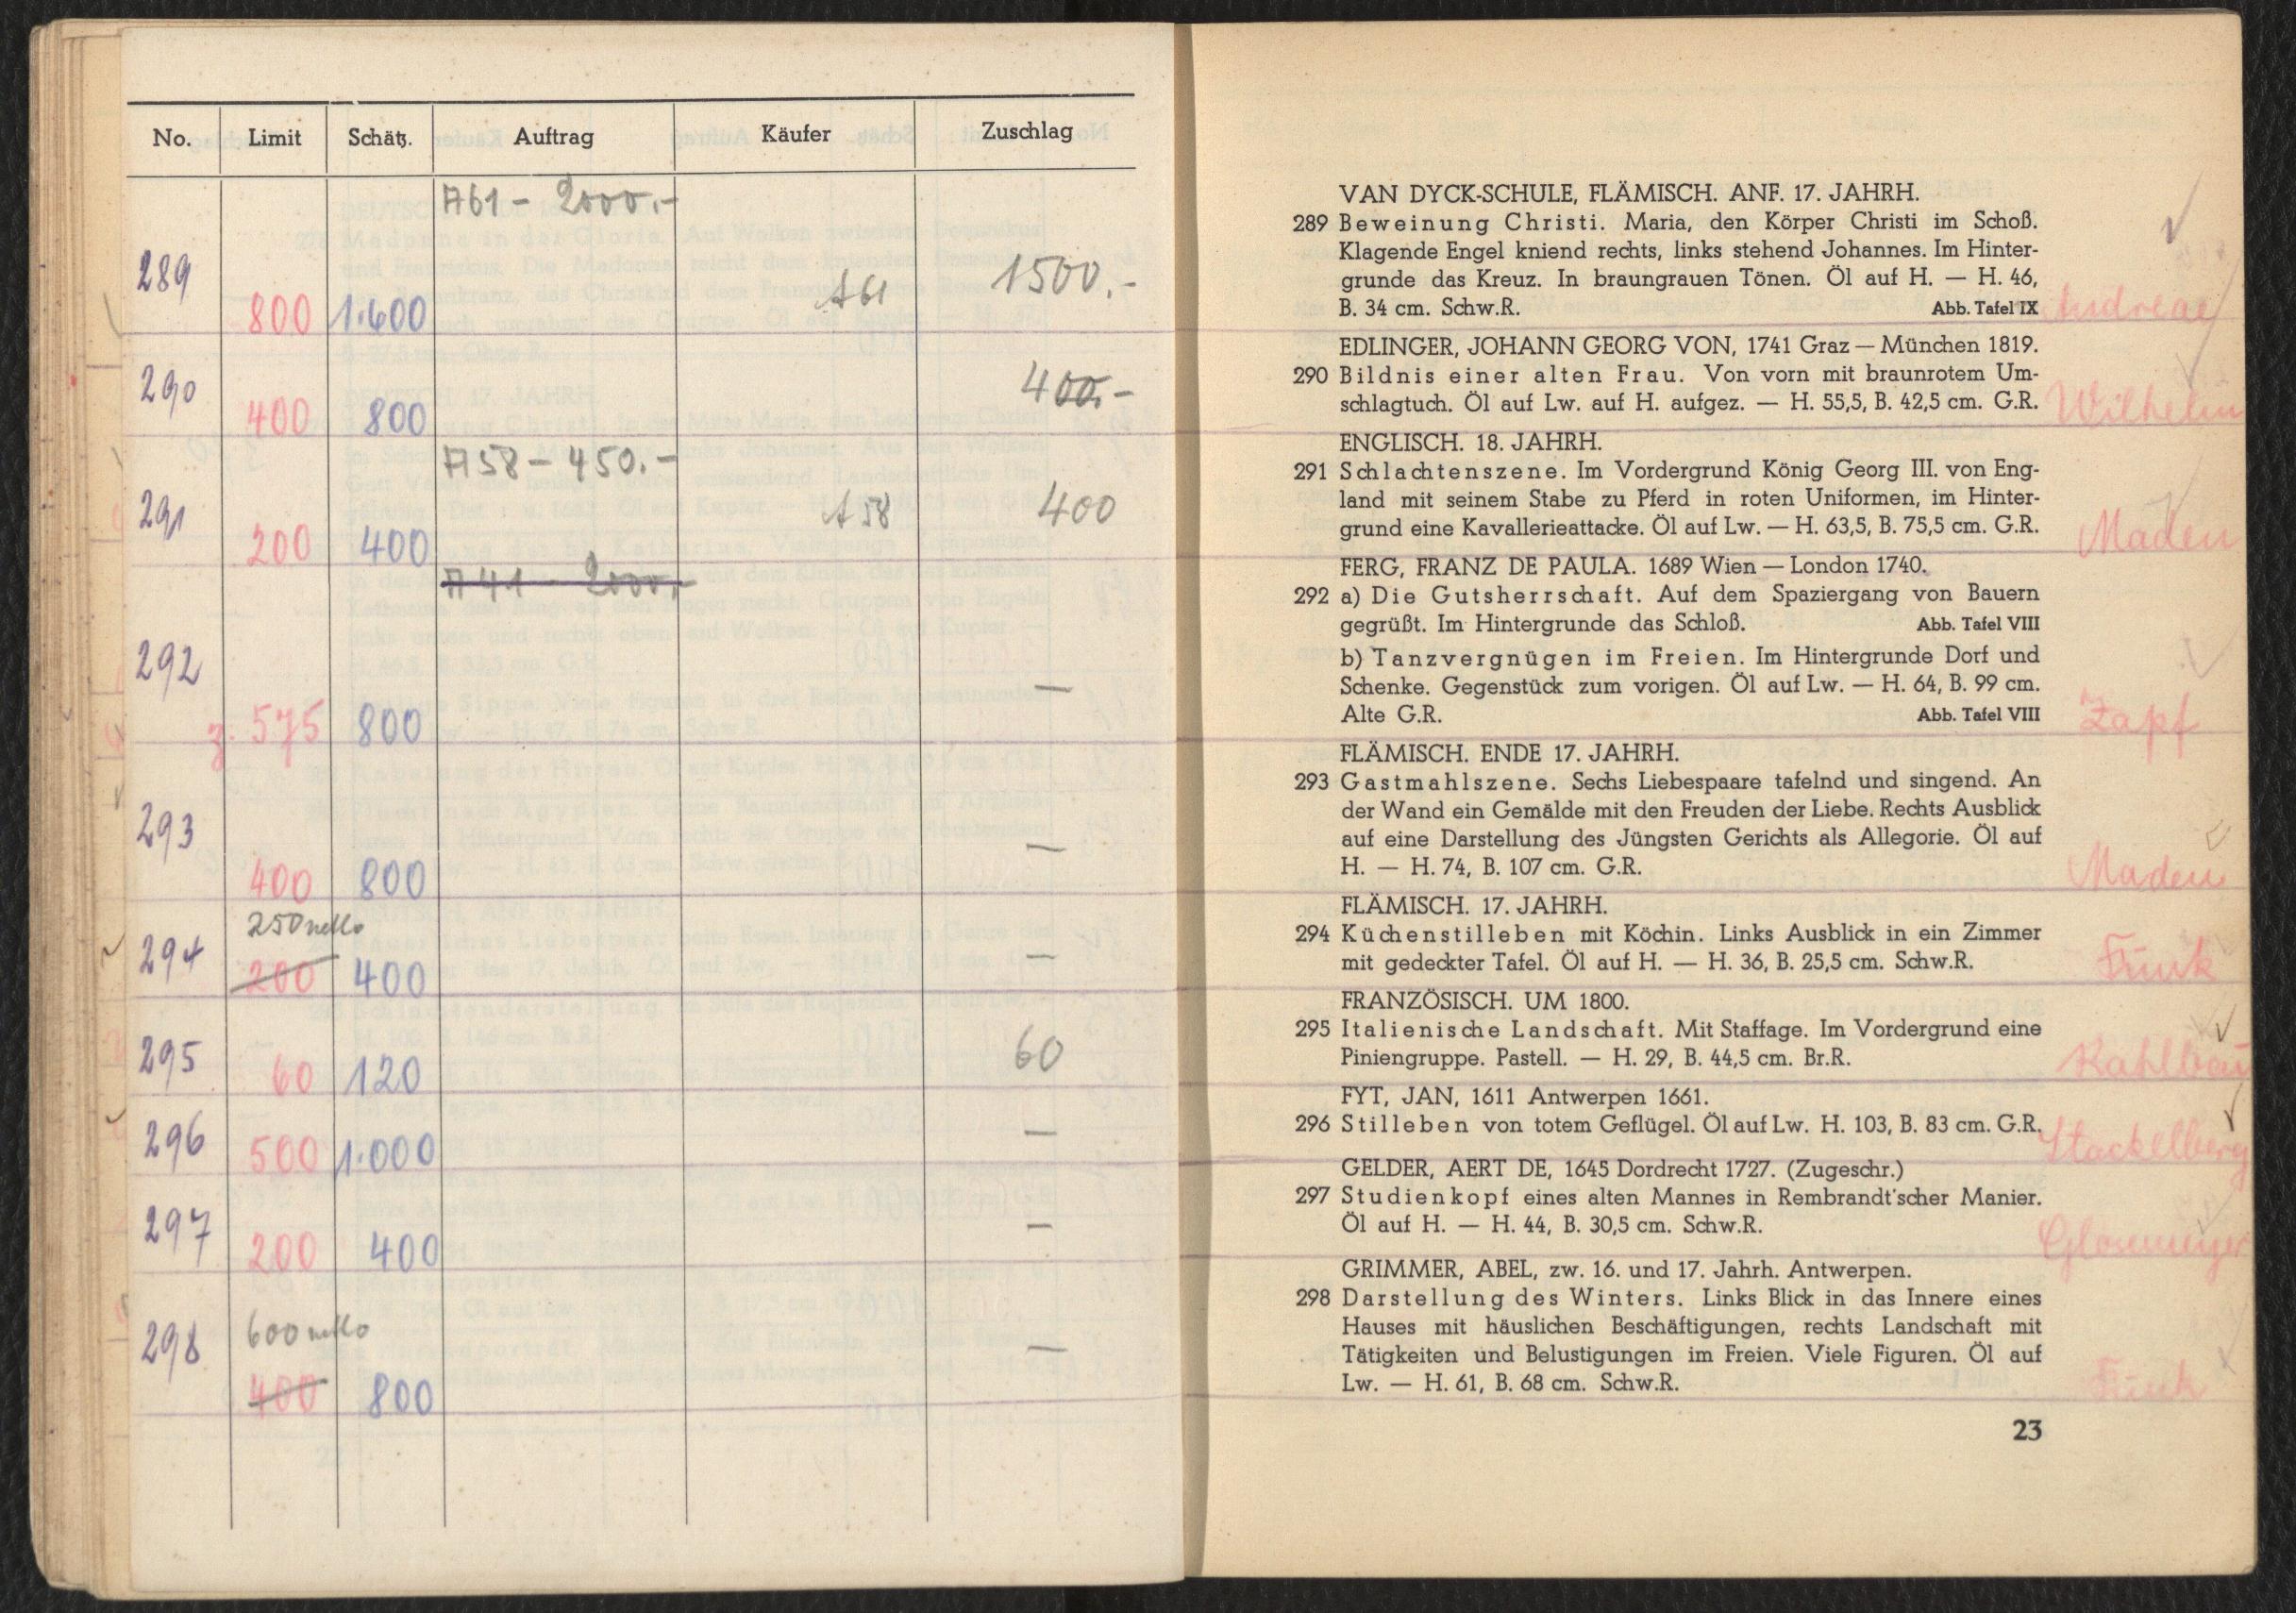 No. Limit Schätz. Auftrag Käufer Zuschlag
A61 - 2000.-
289 800 1.600 A61 1500.-
290 400 800 400.-
A58 - 450.-
291 200 400 A58 400
A41 - 2000.-
292 z. 575 800 —
293 400 800 —
250 netto
294 200 400 —
295 60 120 60
296 500 1.000 —
297 200 400 —
298 600 netto —
400 800
VAN DYCK-SCHULE, FLÄMISCH. ANF. 17. JAHRH.
289 Beweinung Christi. Maria, den Körper Christi im Schoß.
Klagende Engel kniend rechts, links stehend Johannes. Im Hinter-
grunde das Kreuz. In braungrauen Tönen. Öl auf H. — H. 46,
B. 34 cm. Schw.R. Abb. Tafel IX Andreae
EDLINGER, JOHANN GEORG VON, 1741 Graz — München 1819.
290 Bildnis einer alten Frau. Von vorn mit braunrotem Um-
schlagtuch. Öl auf Lw. auf H. aufgez. — H. 55,5, B. 42,5 cm. G.R. Wilhelm
ENGLISCH. 18. JAHRH.
291 Schlachtenszene. Im Vordergrund König Georg III. von Eng-
land mit seinem Stabe zu Pferd in roten Uniformen, im Hinter-
grund eine Kavallerieattacke. Öl auf Lw. — H. 63,5, B. 75,5 cm. G.R. Maden
FERG, FRANZ DE PAULA. 1689 Wien — London 1740.
292 a) Die Gutsherrschaft. Auf dem Spaziergang von Bauern
gegrüßt. Im Hintergrunde das Schloß. Abb. Tafel VIII
b) Tanzvergnügen im Freien. Im Hintergrunde Dorf und
Schenke. Gegenstück zum vorigen. Öl auf Lw. — H. 64, B. 99 cm.
Alte G.R. Abb. Tafel VIII Zapf
FLÄMISCH. ENDE 17. JAHRH.
293 Gastmahlszene. Sechs Liebespaare tafelnd und singend. An
der Wand ein Gemälde mit den Freuden der Liebe. Rechts Ausblick
auf eine Darstellung des Jüngsten Gerichts als Allegorie. Öl auf
H. — H. 74, B. 107 cm. G.R. Maden
FLÄMISCH. 17. JAHRH.
294 Küchenstilleben mit Köchin. Links Ausblick in ein Zimmer
mit gedeckter Tafel. Öl auf H. — H. 36, B. 25,5 cm. Schw.R. Funk
FRANZÖSISCH. UM 1800.
295 Italienische Landschaft. Mit Staffage. Im Vordergrund eine
Piniengruppe. Pastell. — H. 29, B. 44,5 cm. Br.R.
FYT, JAN, 1611 Antwerpen 1661.
296 Stilleben von totem Geflügel. Öl auf Lw. H. 103, B. 83 cm. G.R. Stackelberg
GELDER, AERT DE, 1645 Dordrecht 1727. (Zugeschr.)
297 Studienkopf eines alten Mannes in Rembrandt'scher Manier.
Öl auf H. — H. 44, B. 30,5 cm. Schw.R. Glosemeyer
GRIMMER, ABEL, zw. 16. und 17. Jahrh. Antwerpen.
298 Darstellung des Winters. Links Blick in das Innere eines
Hauses mit häuslichen Beschäftigungen, rechts Landschaft mit
Tätigkeiten und Belustigungen im Freien. Viele Figuren. Öl auf
Lw. — H. 61, B. 68 cm. Schw.R. Funk
23